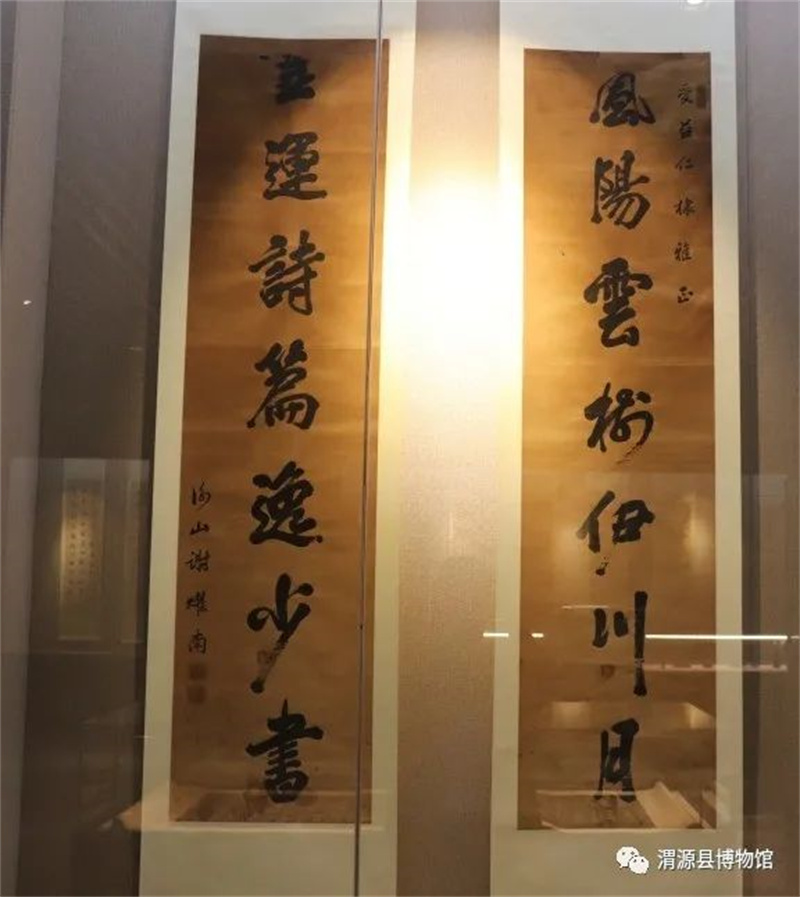 愛仁棣雅正
鳳陽雲樹伊川月
運詩篇逸少書
山謝燿南
渭源县博物馆